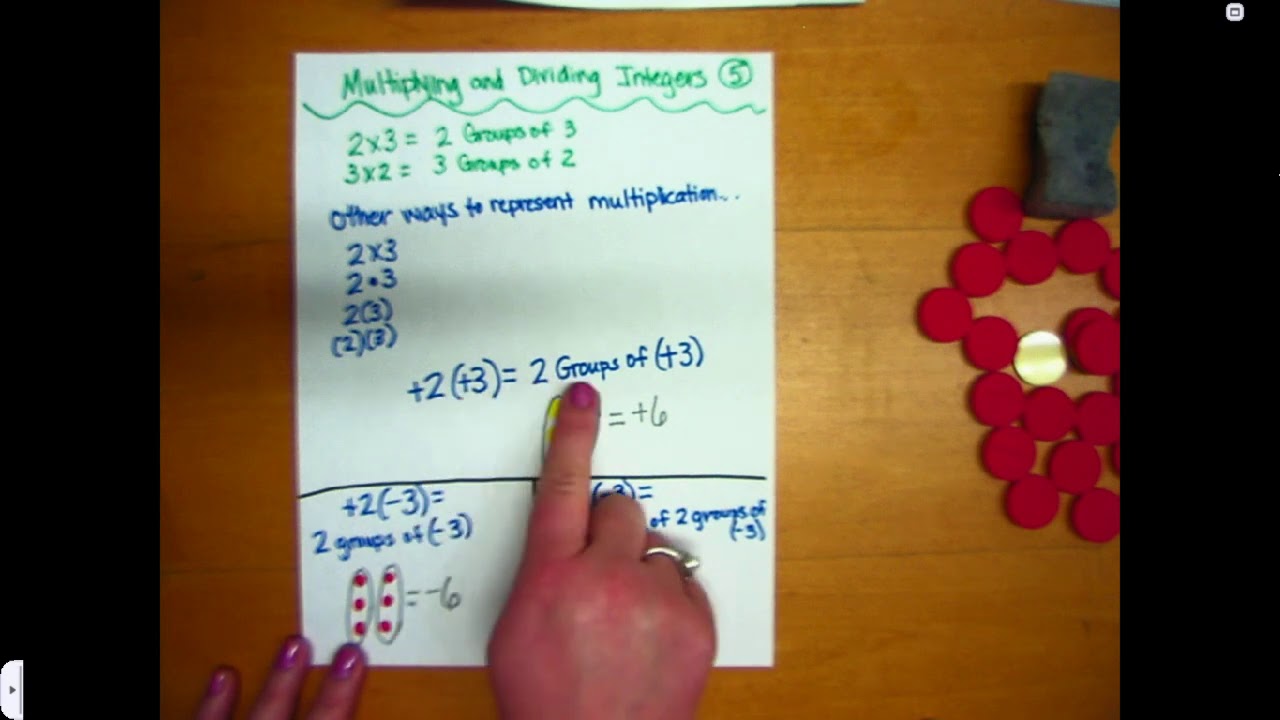 Multiplying and Dividing Integers 5
2x3 = 2 Groups of 3
3x2 = 3 Groups of 2
other ways to represent multiplication...
2x3
2•3
2(3)
(2)(3)
+2(+3)= 2 Groups of (+3)
= +6
+2(-3)=
2 groups of (-3)
= -6
(-3)=
of 2 groups of
(-3)